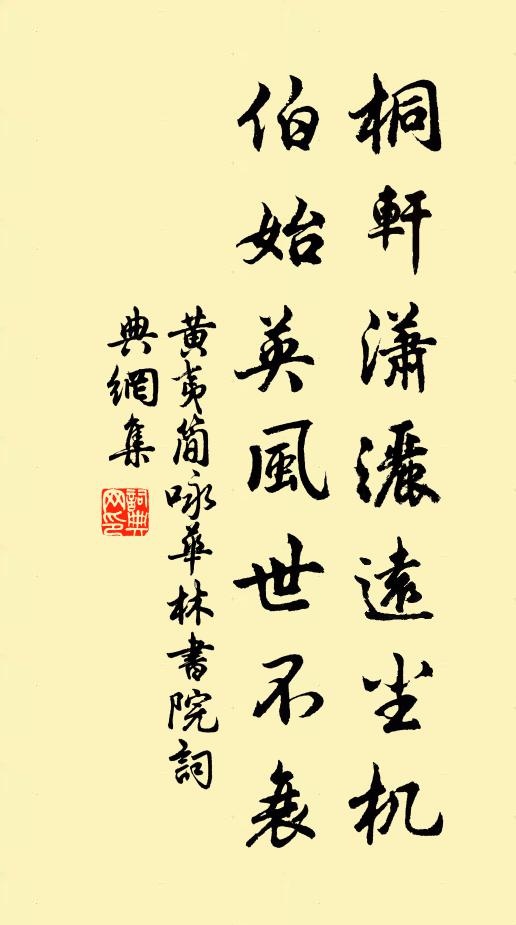 桐軒瀟灑遠尘机
伯始英風世不衰
黃夷简咏華林書院詞
典網集
詞典网印